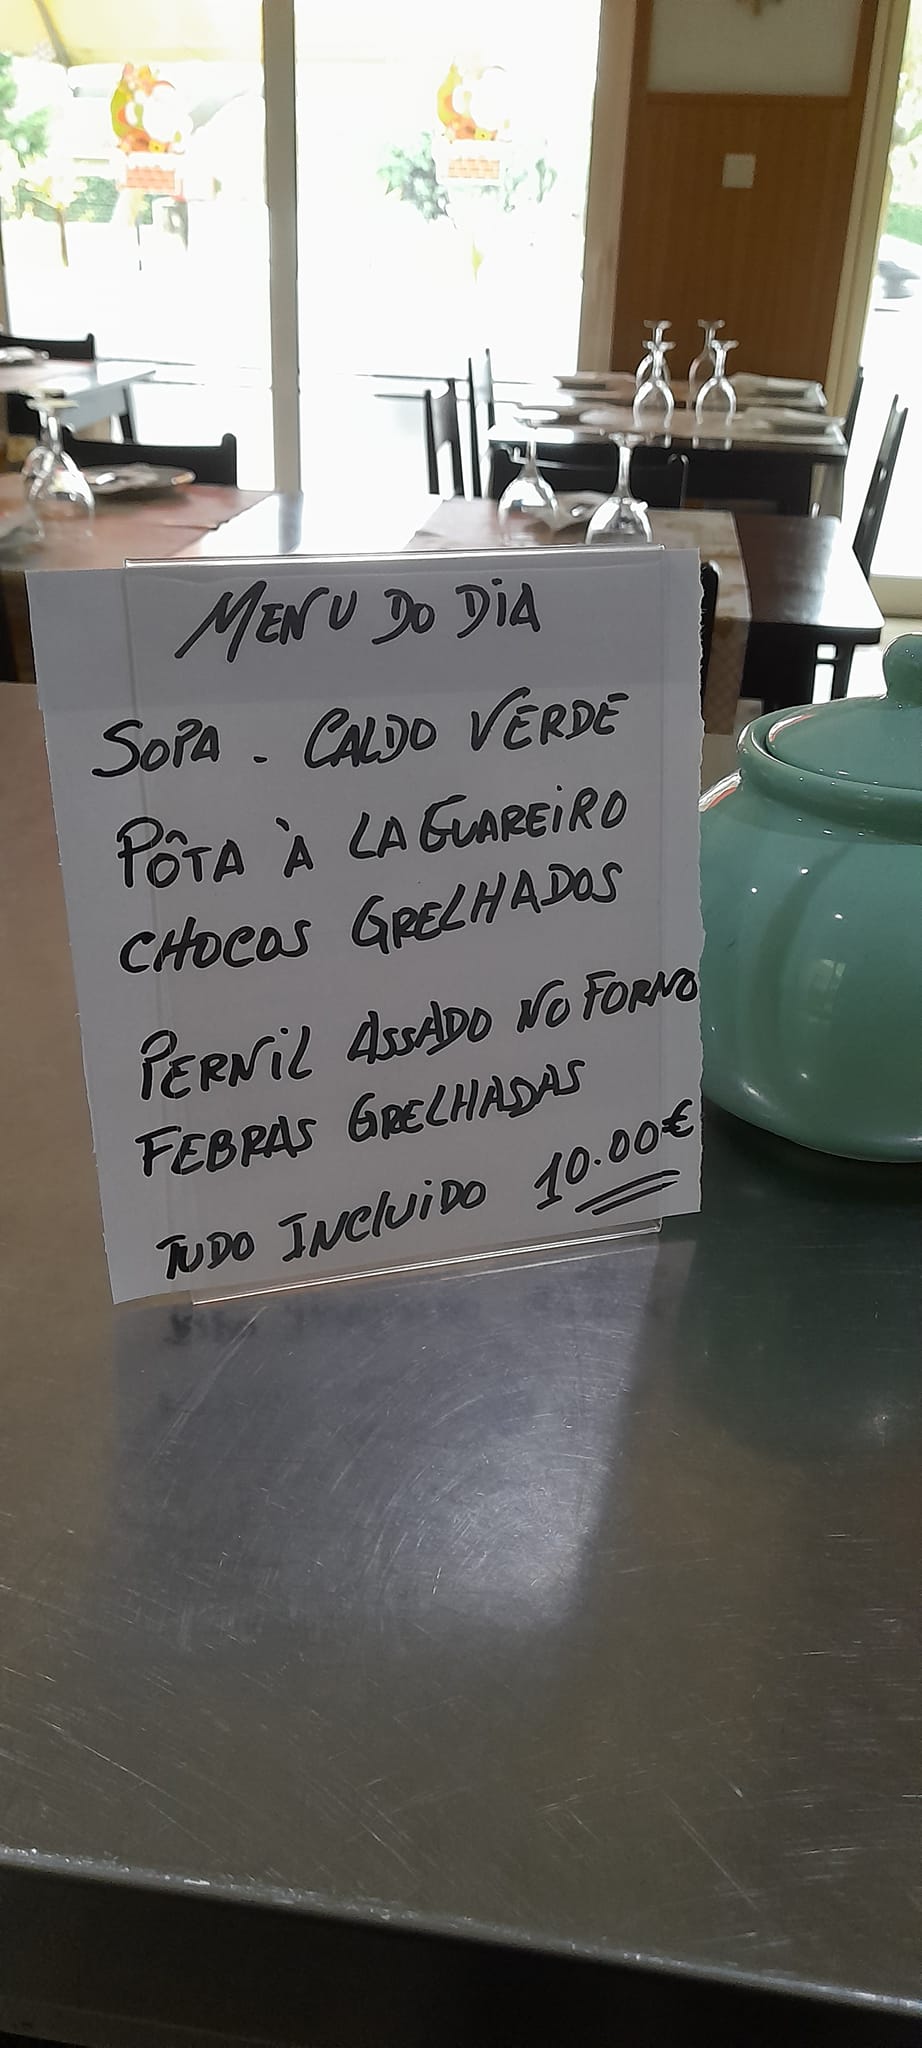 MENU DO DIA
SOPA . CALDO VERDE
PÔTA À LAGUAREIRO
CHOCOS GRELHADOS
PERNIL ASSADO NO FORNO
FEBRAS GRELHADAS
TUDO INCLUIDO 10.00€